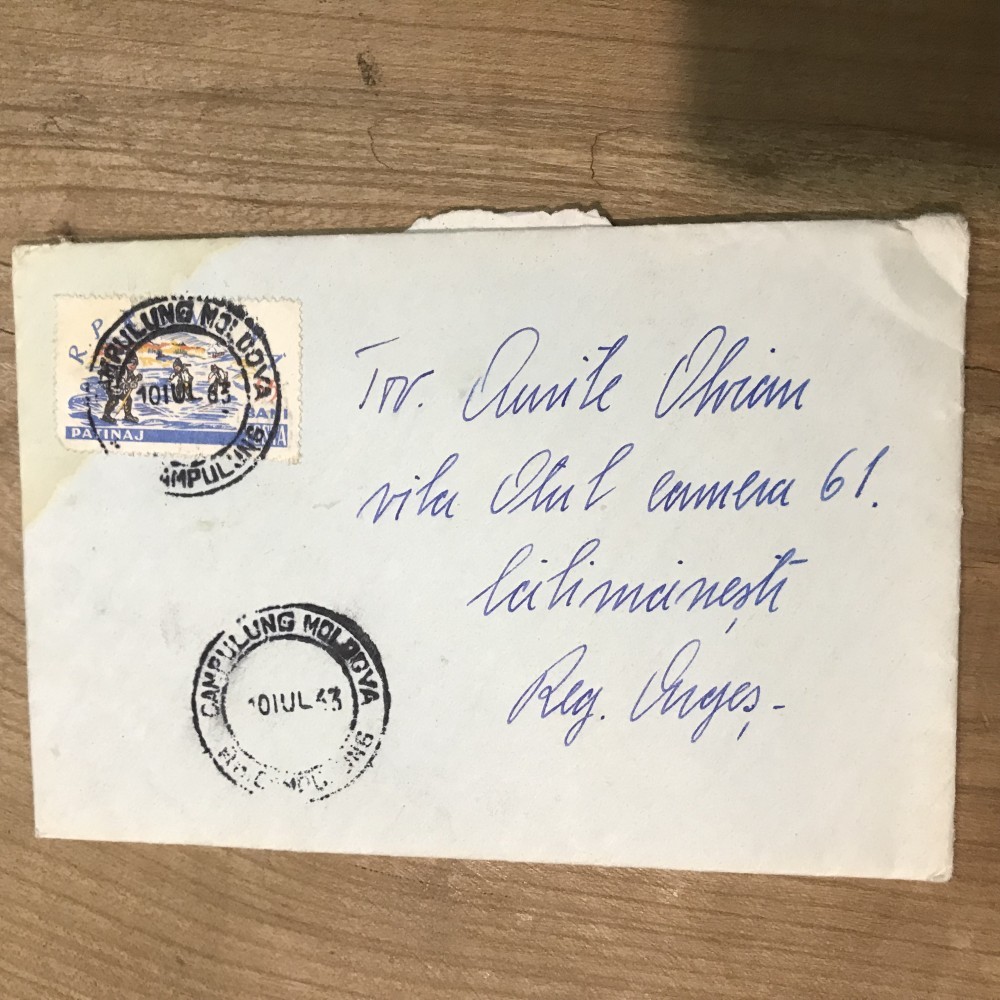 R.P.
BANI
PATINAJ
CAMPULUNG MOLDOVA
10 IUL 63
CAMPULUNG
Tov. Aurite Olvian
vila Oltul camera 61.
Călimănești
Reg. Argeș-
CAMPULUNG MOLDOVA
10 IUL 63